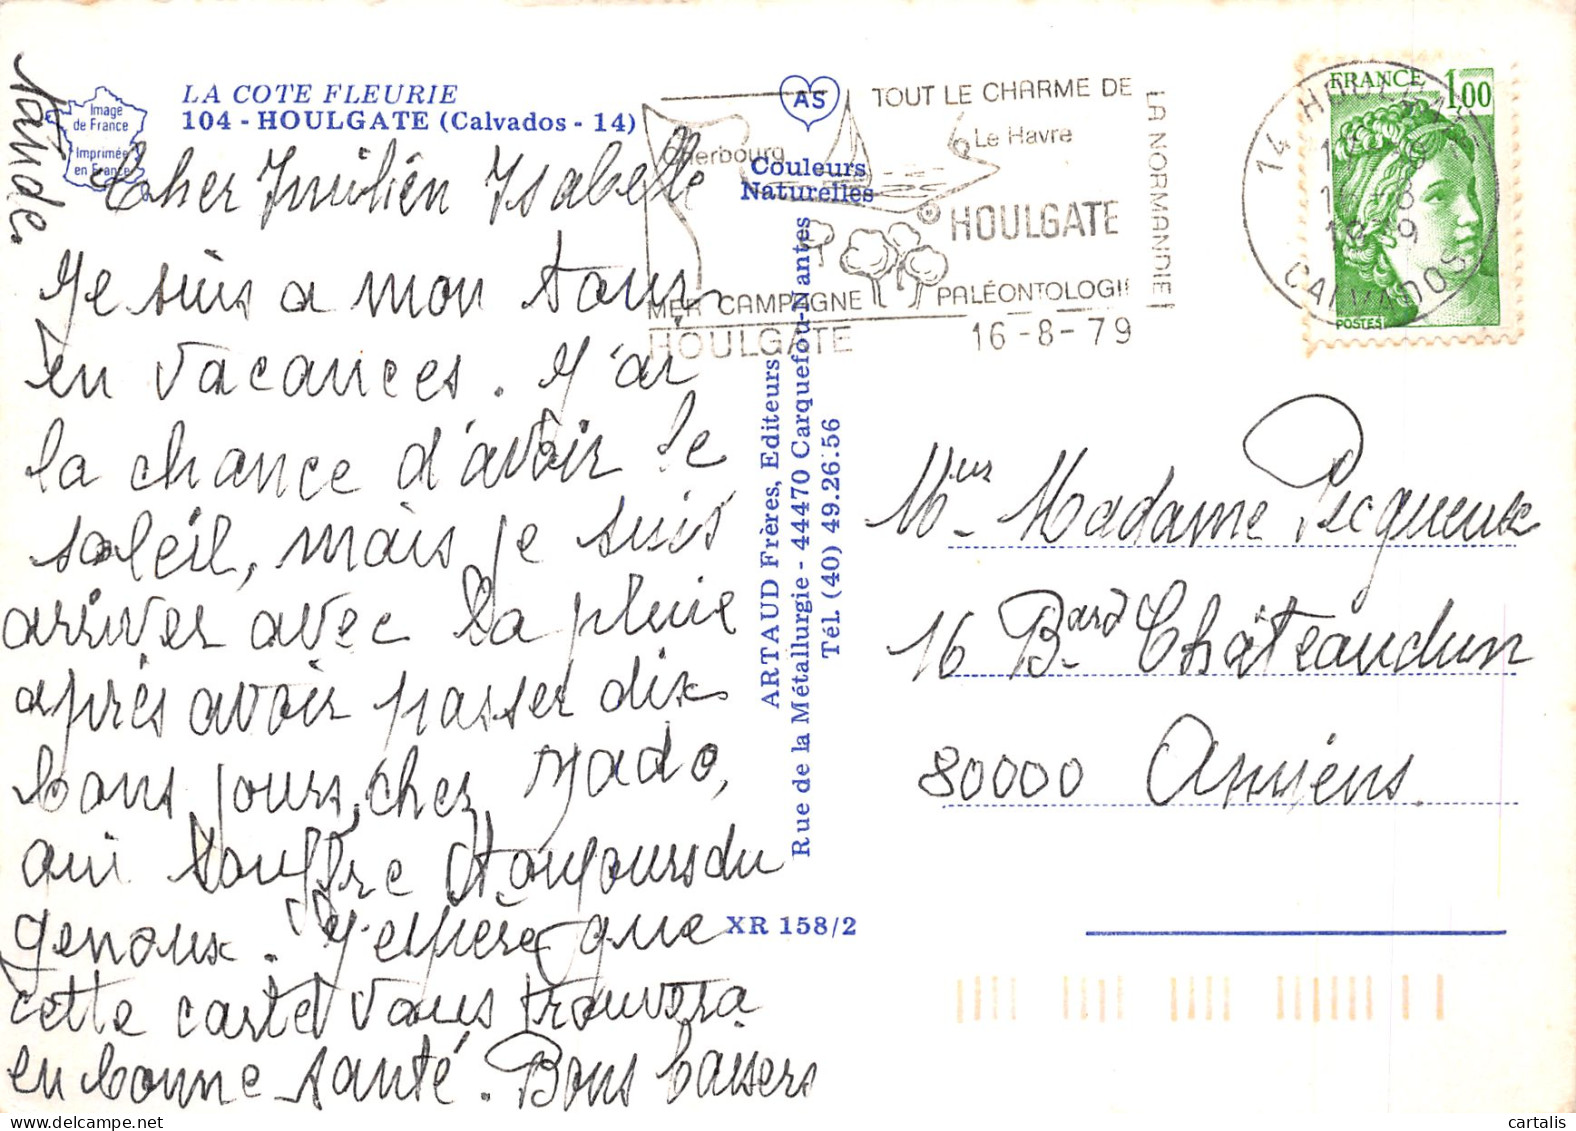 LA COTE FLEURIE
104 - HOULGATE (Calvados - 14)
Image
de France
Imprimée
en France
AS
Couleurs
Naturelles
TOUT LE CHARME DE
LA NORMANDIE !
Cherbourg
Le Havre
HOULGATE
MER CAMPAGNE PALÉONTOLOGIE
HOULGATE 16-8-79
14 HOULGATE
CALVADOS
FRANCE 1,00
POSTES
Cher Emilien Isabelle
Je suis a mon tour
en vacances. J'ai
la chance d'avoir le
soleil, mais je suis
arriver avec la pluie
après avoir passer dix
bons jours chez Mado,
qui souffre toujours du
genoux. J'espère que
cette carte vous trouvera
en bonne santé. Bons baisers
ARTAUD Frères, Editeurs
Rue de la Métallurgie - 44470 Carquefou-Nantes
Tél. (40) 49.26.56
XR 158/2
Mr Madame Pecqueux
16 Bard Châteaudun
80000 Amiens.